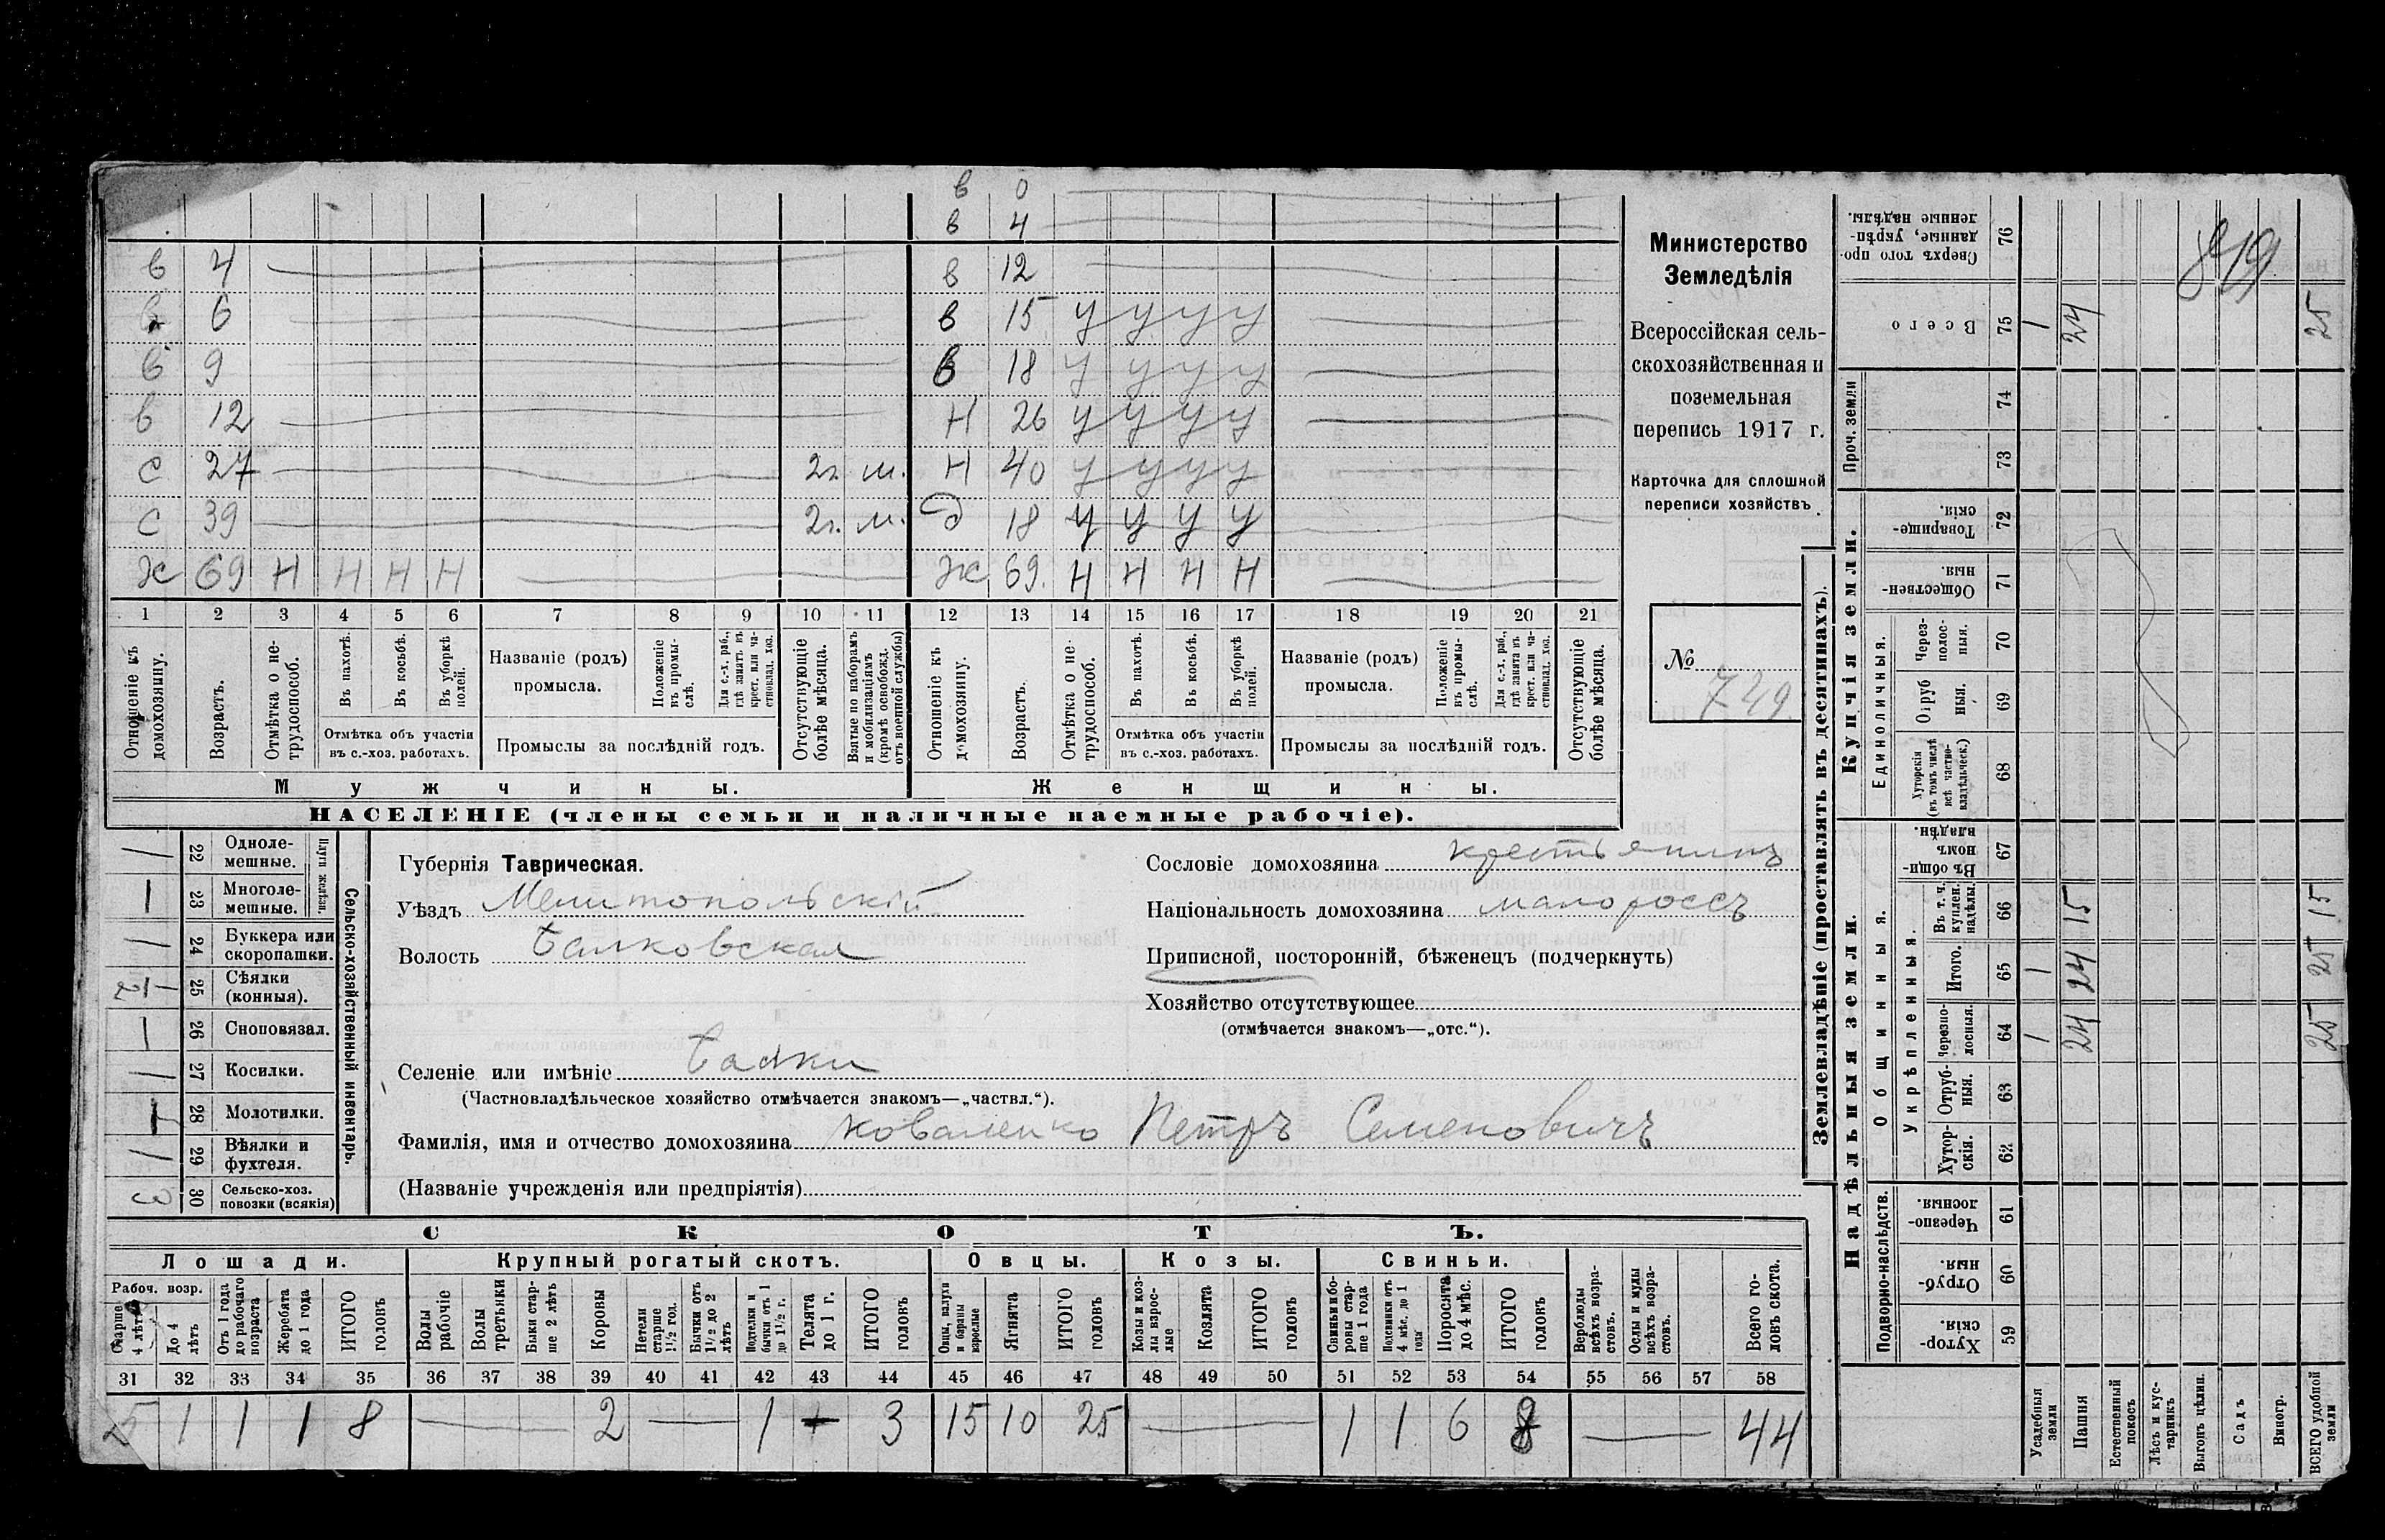 в 0
в 4
в 4 в 12
в 6 в 15 у у у у
в 9 в 18 у у у у
в 12 Н 26 у у у у
с 27 2г. м. Н 40 у у у у
с 39 2г. м. д 18 у у у у
Ж 69 Н Н Н Н Ж 69. Н Н Н Н
1 2 3 4 5 6 7 8 9 10 11 12 13 14 15 16 17 18 19 20 21
Отношеніе къ домохозяину.
Возрастъ.
Отмѣтка о не-трудоспособ.
Въ пахотѣ.
Въ косьбѣ.
Въ уборкѣ полей.
Отмѣтка объ участіи
въ с.-хоз. работахъ.
Названіе (родъ)
промысла.
Положеніе въ промы-слѣ.
Для с.-х. раб., гдѣ занятъ въ крест. или ча-стновлад. хоз.
Промыслы за послѣдній годъ.
Отсутствующіе болѣе мѣсяца.
Взятые по наборамъ и мобилизаціямъ (кромѣ освобожд. отъ военной службы)
Отношеніе къ домохозяину.
Возрастъ.
Отмѣтка о не-трудоспособ.
Въ пахотѣ.
Въ косьбѣ.
Въ уборкѣ полей.
Отмѣтка объ участіи
въ с.-хоз. работахъ.
Названіе (родъ)
промысла.
Положеніе въ промы-слѣ.
Для с.-х. раб., гдѣ занята въ крест. или ча-стновлад. хоз.
Промыслы за послѣдній годъ.
Отсутствующіе болѣе мѣсяца.
Мужчины. Женщины.
НАСЕЛЕНІЕ (члены семьи и наличные наемные рабочіе).
Министерство
Земледѣлія
Всероссійская сель-
скохозяйственная и
поземельная
перепись 1917 г.
Карточка для сплошной
переписи хозяйствъ.
№
729
Сельско-хозяйственный инвентарь.
Плуги желѣзн.
/ 22 Одноле-мешные.
/ 23 Многоле-мешные.
/ 24 Буккера или скоропашки.
1/2 25 Сѣялки (конныя).
/ 26 Сноповязал.
/ 27 Косилки.
1 28 Молотилки.
/ 29 Вѣялки и фухтеля.
3 30 Сельско-хоз. повозки (всякія)
Губернія Таврическая.
Уѣздъ Мелитопольскій
Волость Балковская
Сословіе домохозяина крестьянинъ
Національность домохозяина малороссъ
Приписной, посторонній, бѣженецъ (подчеркнуть)
Хозяйство отсутствующее
(отмѣчается знакомъ—„отс.“).
Селеніе или имѣніе Балки
(Частновладѣльческое хозяйство отмѣчается знакомъ—„частвл.“).
Фамилія, имя и отчество домохозяина Коваленко Петръ Семеновичъ
(Названіе учрежденія или предпріятія)
СКОТЪ.
Лошади. Крупный рогатый скотъ. Овцы. Козы. Свиньи.
Рабоч. возр.
Старше 4 лѣтъ
До 4 лѣтъ
Отъ 1 года до рабочаго возраста
Жеребята до 1 года
ИТОГО головъ
Волы рабочіе
Волы третьяки
Быки стар-ше 2 лѣтъ
Коровы
Нетели старше 1½ год.
Бычки отъ 1½ до 2 лѣтъ
Подтелки и бычки отъ 1 до 1½ г.
Телята до 1 г.
ИТОГО головъ
Овцы, валухи и бараны взрослые
Ягнята
ИТОГО головъ
Козы и коз-лы взрос-лые
Козлята
ИТОГО головъ
Свиньи и бо-ровы стар-ше 1 года
Подсвинки отъ 4 мѣс. до 1 года
Поросята до 4 мѣс.
ИТОГО головъ
Верблюды всѣхъ возра-стовъ.
Ослы и мулы всѣхъ возра-стовъ.
Всего го-ловъ скота.
31 32 33 34 35 36 37 38 39 40 41 42 43 44 45 46 47 48 49 50 51 52 53 54 55 56 57 58
5 1 1 1 8 2 1 3 15 10 25 1 1 6 8 44
Землевладѣніе (проставлять въ десятинахъ).
Надѣльныя земли. Купчія земли. Проч. земли
Подворно-наслѣдств.
Общинныя.
Укрѣпленныя.
Единоличныя.
59 Хутор-скія
60 Отруб-ныя.
61 Черезпо-лосныя.
62 Хутор-скія.
63 Отруб-ныя.
64 Черезпо-лосныя.
65 Итого.
66 Въ т. ч. куплен. надѣлы.
67 Въ общи-номъ владѣн.
68 Хуторскія (въ томъ числѣ всѣ частно-владѣльческ.)
69 Отруб ныя.
70 Через-полос-ныя.
71 Обществен-ныя.
72 Товарище-скія.
73
74
75 Всего
76 Сверхъ того про-данные, укрѣп-ленные надѣлы.
Усадебныя земли
Пашня
Естественный покосъ
Лѣсъ и кус-тарникъ
Выгонъ цѣлин.
Садъ
Виногр.
ВСЕГО удобной земли
1 24 25
1 24 25
15 15
1 24 25
819